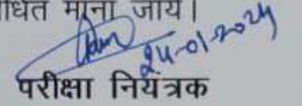 माना जाये।
24-01-2024
परीक्षा नियंत्रक